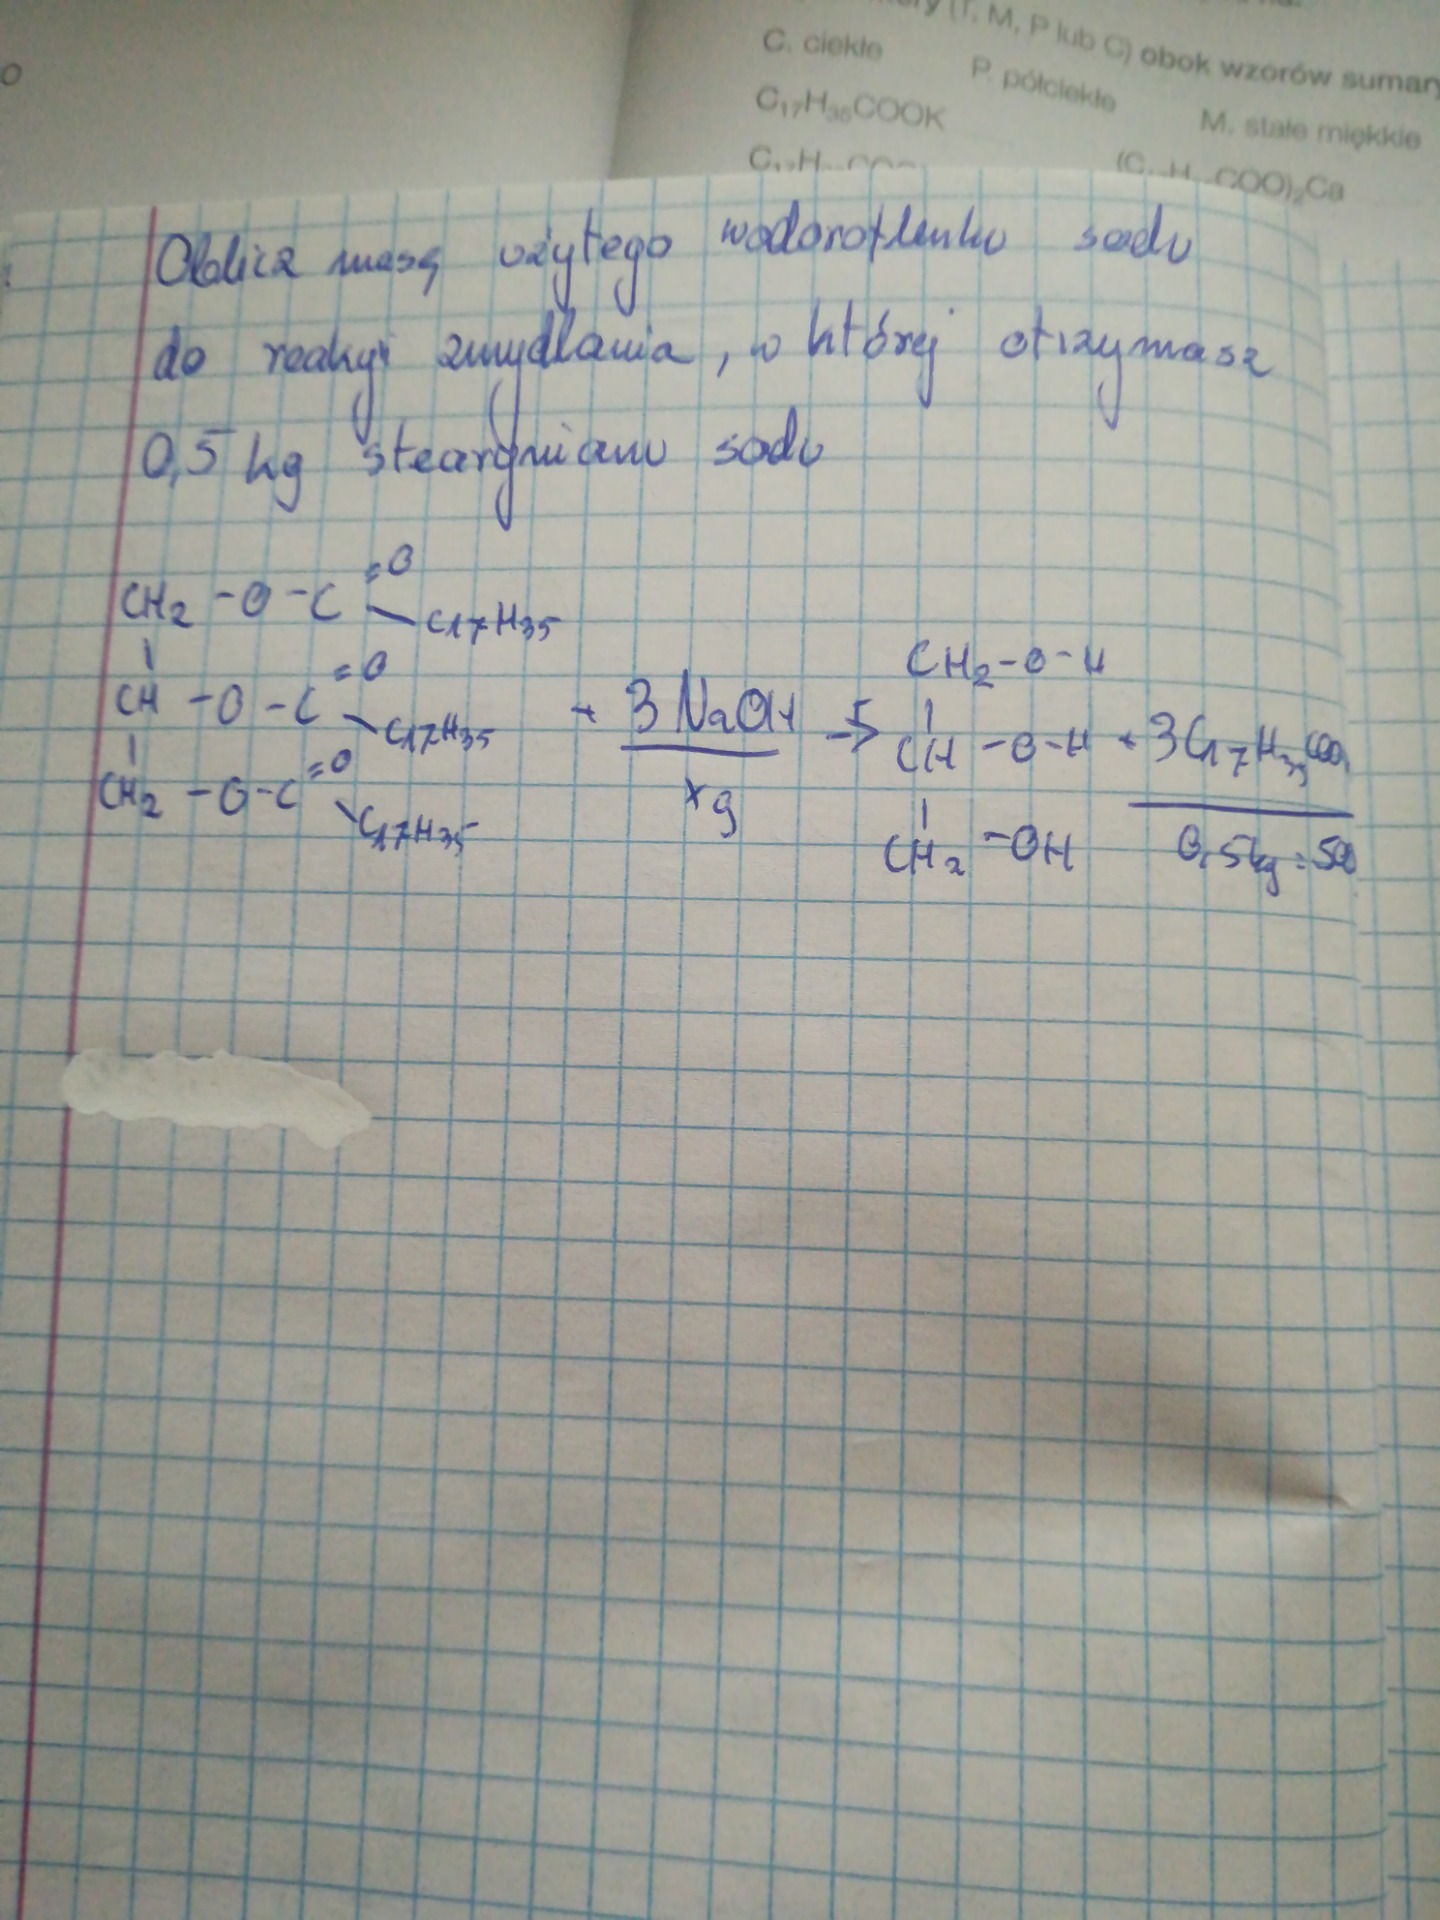 O
(T, M, P lub C) obok wzorów sumary
C. ciekłe P. półciekłe M. stałe miękkie
C₁₇H₃₅COOK
COO)₂Ca
Oblicz masę użytego wodorotlenku sodu
do reakcji zmydlania, w której otrzymasz
0,5 kg stearynianu sodu
CH₂ - O - C =O C₁₇H₃₅
CH - O - C =O C₁₇H₃₅ + 3 NaOH → CH₂ - O - H
CH₂ - O - C =O C₁₇H₃₅ x g CH - O - H + 3 C₁₇H₃₅COO
CH₂ - OH 0,5kg = 50